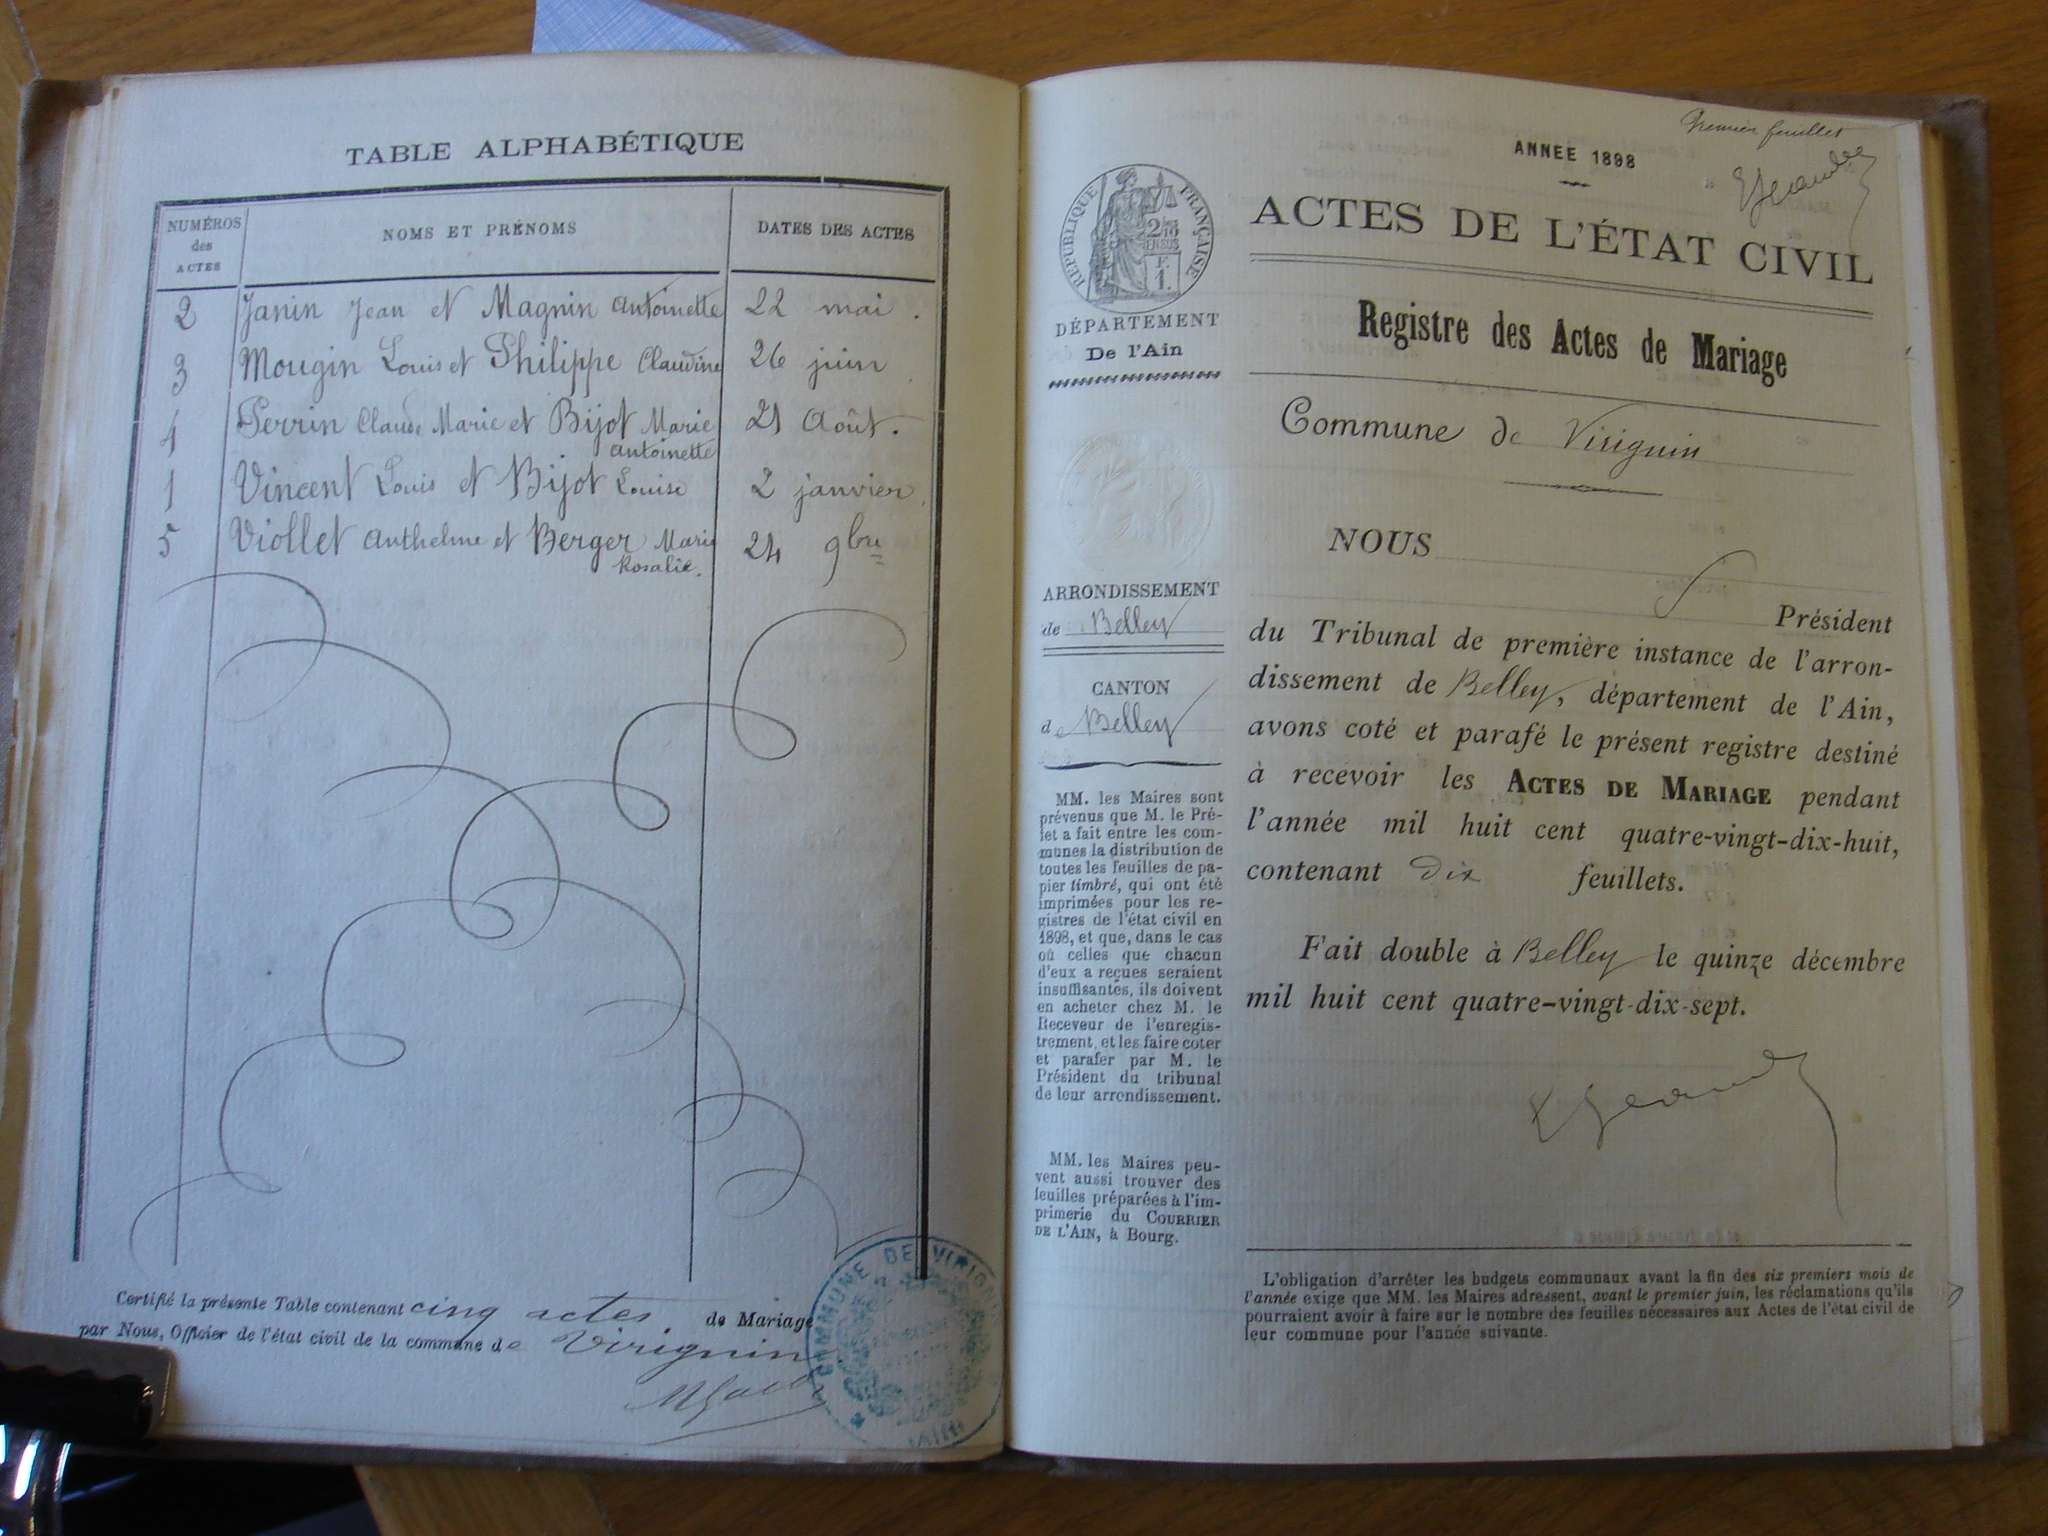 TABLE ALPHABÉTIQUE
NUMÉROS des ACTES NOMS ET PRÉNOMS DATES DES ACTES
2 Janin Jean et Magnin Antoinette 22 mai.
3 Mougin Louis et Philippe Claudine 26 juin
4 Perrin Claude Marie et Bijot Marie 21 Août.
Antoinette
1 Vincent Louis et Bijot Louise 2 janvier.
5 Viollet Anthelme et Berger Marie 24 9bre
Rosalie.
Certifié la présente Table contenant cinq actes de Mariage
par Nous, Officier de l'état civil de la commune de Virignin
COMMUNE DE VIRIGNIN
(AIN)
Premier feuillet
ANNÉE 1898
RÉPUBLIQUE FRANÇAISE
2/10es
EN SUS
F.
1.
ACTES DE L'ÉTAT CIVIL
DÉPARTEMENT
De l'Ain
Registre des Actes de Mariage
Commune de Virignin
ARRONDISSEMENT
de Belley
CANTON
de Belley
MM. les Maires sont
prévenus que M. le Pré-
fet a fait entre les com-
munes la distribution de
toutes les feuilles de pa-
pier timbré, qui ont été
imprimées pour les re-
gistres de l'état civil en
1898, et que, dans le cas
où celles que chacun
d'eux a reçues seraient
insuffisantes, ils doivent
en acheter chez M. le
Receveur de l'enregis-
trement, et les faire coter
et parafer par M. le
Président du tribunal
de leur arrondissement.
MM. les Maires peu-
vent aussi trouver des
feuilles préparées à l'im-
primerie du COURRIER
DE L'AIN, à Bourg.
NOUS
Président
du Tribunal de première instance de l'arron-
dissement de Belley, département de l'Ain,
avons coté et parafé le présent registre destiné
à recevoir les ACTES DE MARIAGE pendant
l'année mil huit cent quatre-vingt-dix-huit,
contenant dix feuillets.
Fait double à Belley le quinze décembre
mil huit cent quatre-vingt-dix-sept.
L'obligation d'arrêter les budgets communaux avant la fin des six premiers mois de
l'année exige que MM. les Maires adressent, avant le premier juin, les réclamations qu'ils
pourraient avoir à faire sur le nombre des feuilles nécessaires aux Actes de l'état civil de
leur commune pour l'année suivante.